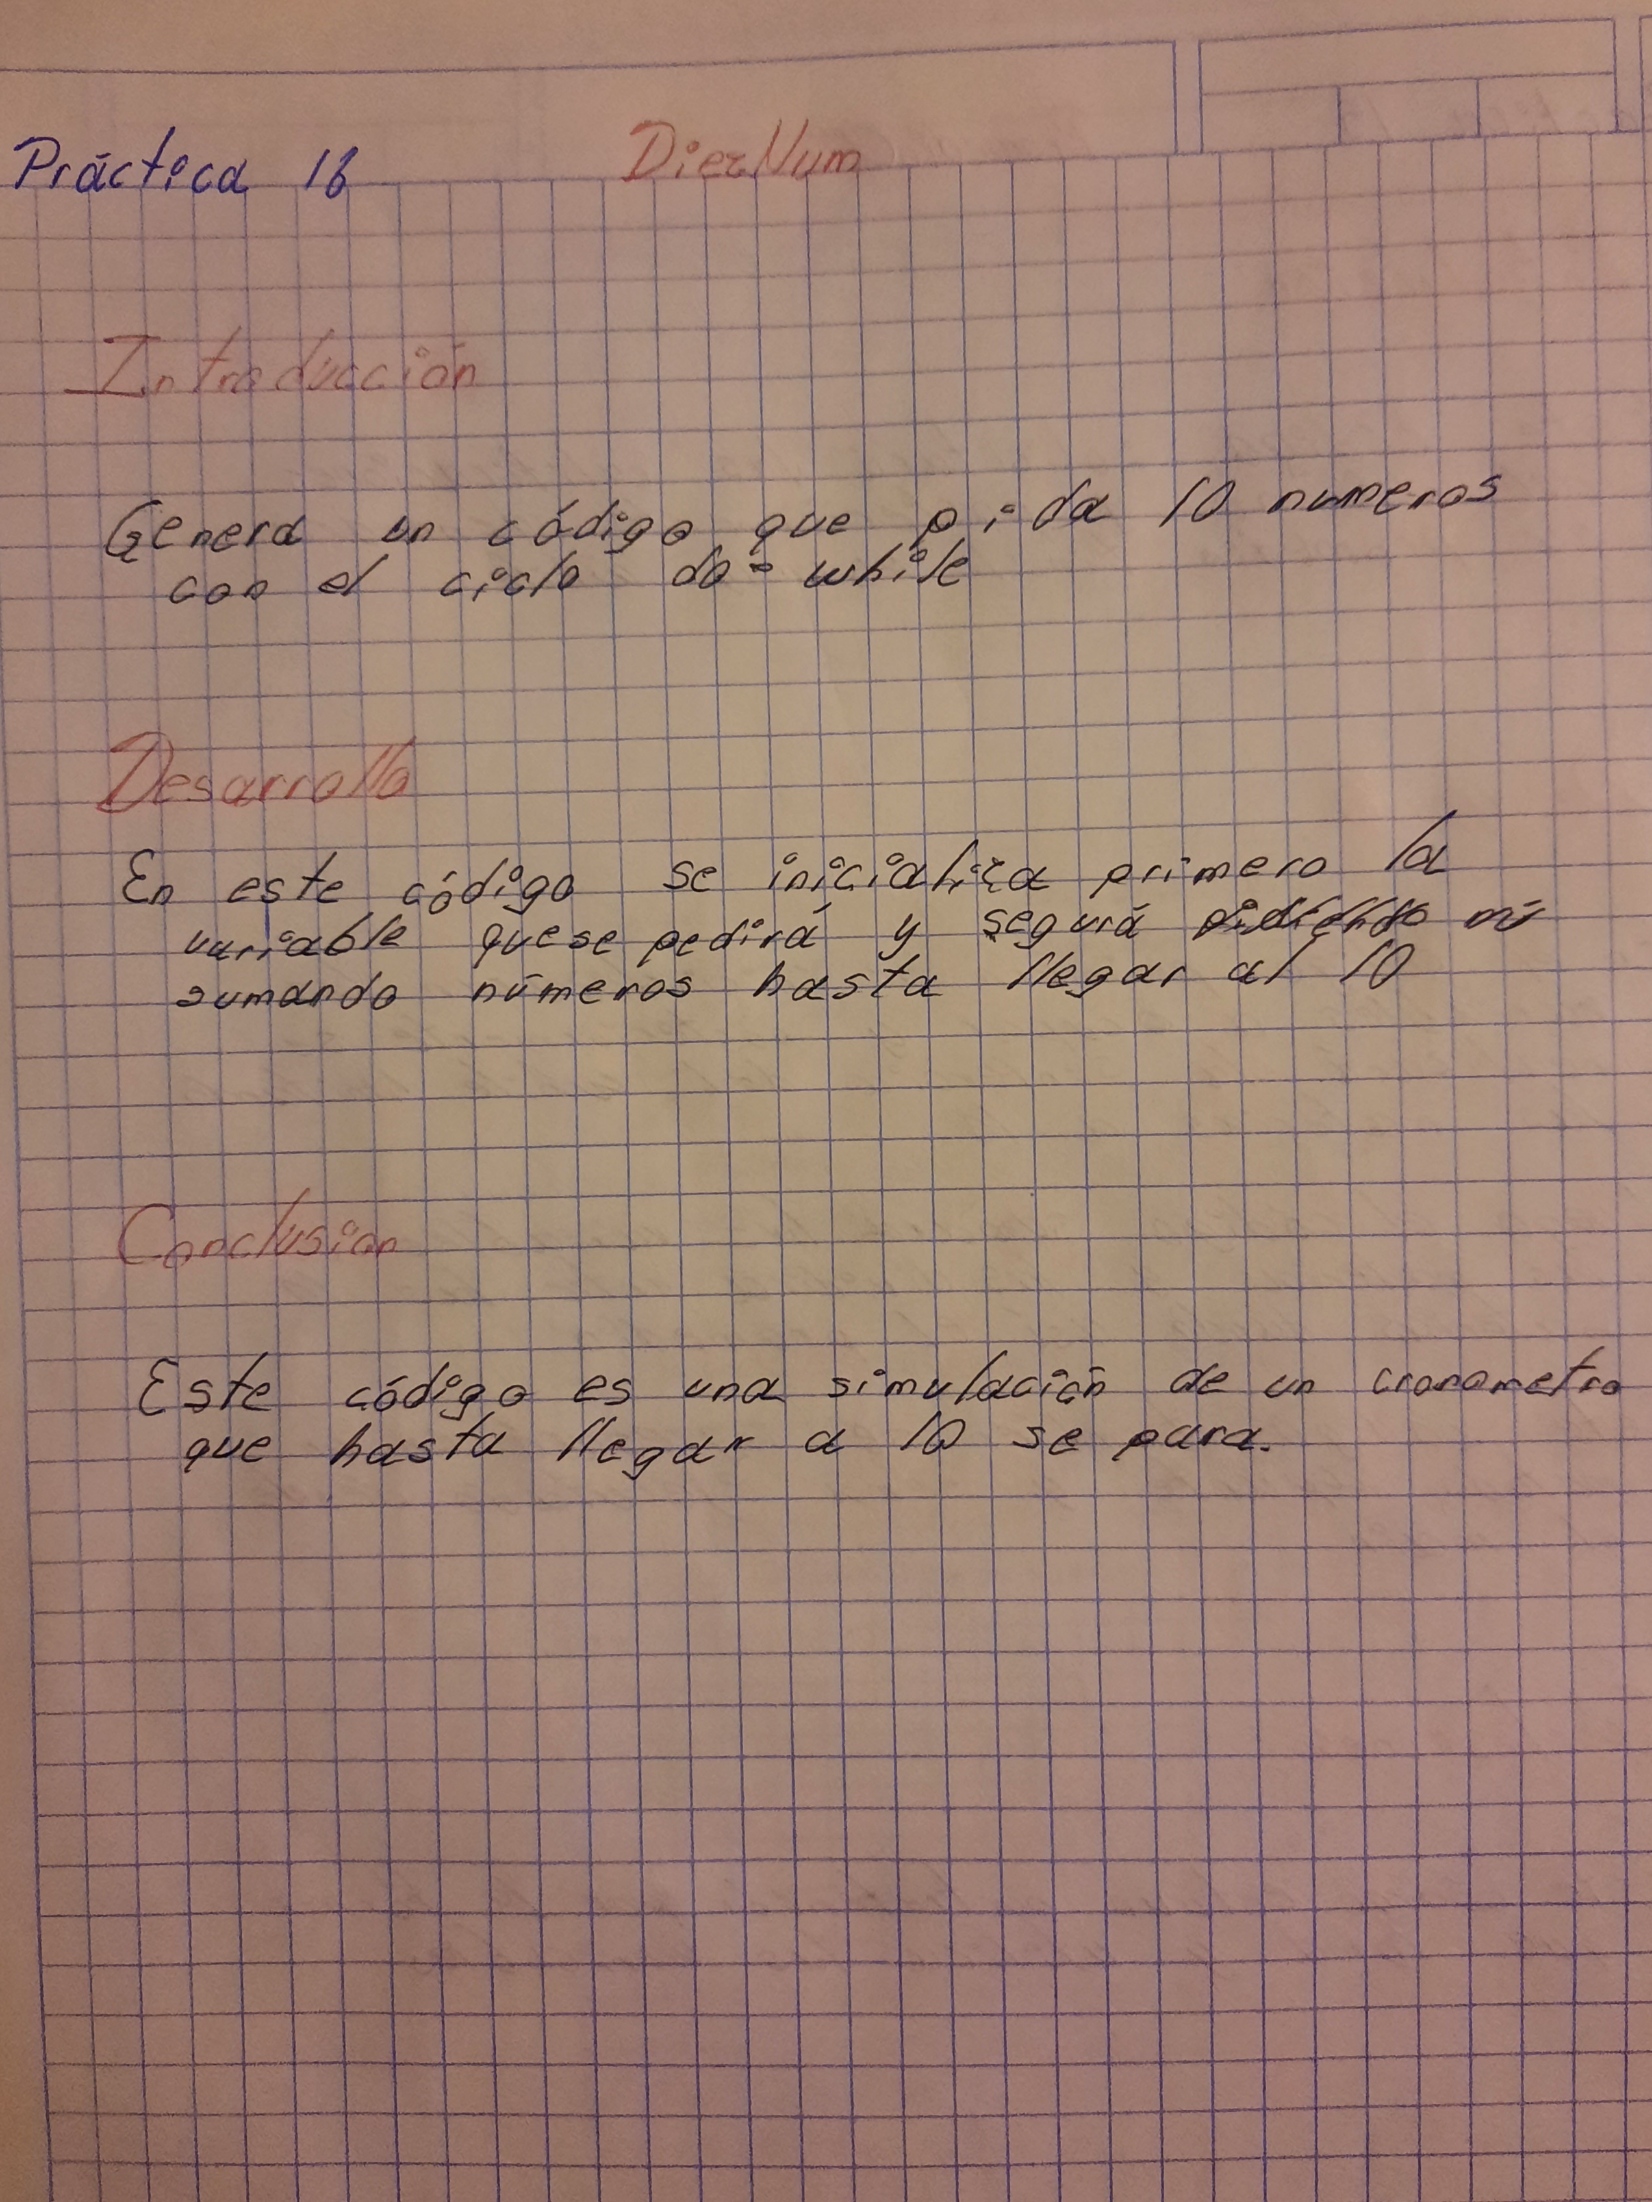 Práctica 16 DiezNum
Introducción
Genera un código que pida 10 numeros
con el ciclo do-while
Desarrollo
En este código se inicializa primero la
variable que se pedirá y seguirá
sumando números hasta llegar al 10
Conclusion
Este código es una simulación de un cronometro
que hasta llegar a 10 se para.